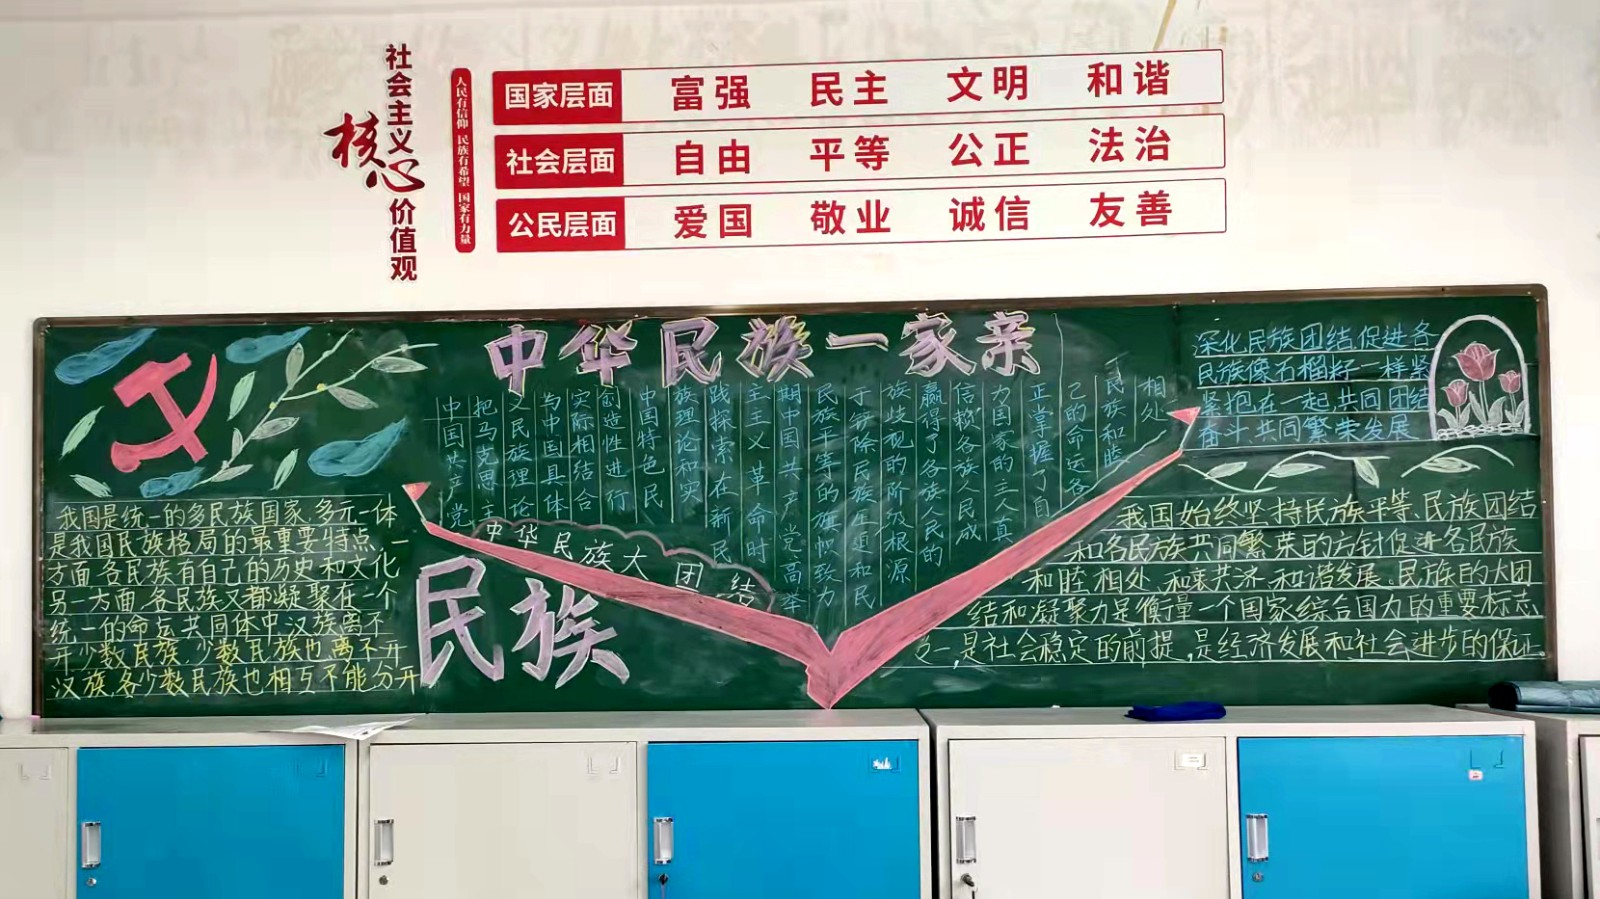 社会主义
核心
价值观
人民有信仰 民族有希望 国家有力量
国家层面 富强 民主 文明 和谐
社会层面 自由 平等 公正 法治
公民层面 爱国 敬业 诚信 友善
中华民族一家亲
我国是统一的多民族国家,多元一体
是我国民族格局的最重要特点,一
方面,各民族有自己的历史和文化
另一方面,各民族又都凝聚在一个
统一的命运共同体中,汉族离不
开少数民族,少数民族也离不开
汉族,各少数民族也相互不能分开
中国共产党
把马克思主
义民族理论
与中国具体
实际相结合
创造性进行
中国特色民
族理论和实
践探索在新民
主主义革命时
期中国共产党高举
民族平等的旗帜致力
于铲除民族压迫和民
族歧视的阶级根源
赢得了各族人民的
信赖各族人民成
为国家的主人真
正掌握了自
己的命运各
民族和睦
相处
中华民族大团结
民族
深化民族团结,促进各
民族像石榴籽一样紧
紧抱在一起共同团结
奋斗,共同繁荣发展
我国始终坚持民族平等、民族团结
和各民族共同繁荣的方针促进各民族
和睦相处、和衷共济、和谐发展。民族的大团
结和凝聚力是衡量一个国家综合国力的重要标志
之一,是社会稳定的前提,是经济发展和社会进步的保证